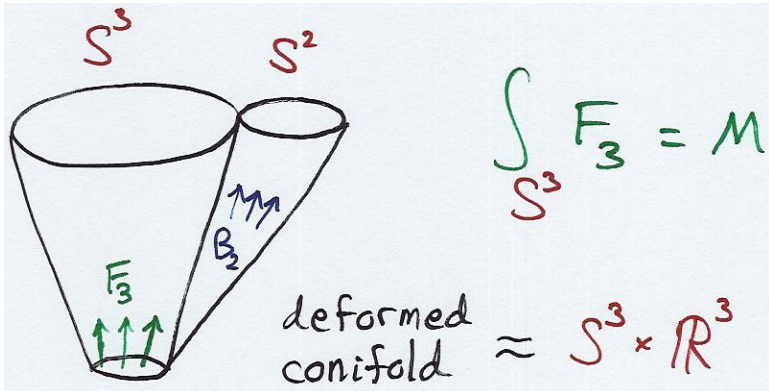 S³ S²
∫_{S³} F₃ = M
B₂
F₃
deformed
conifold ≈ S³ × ℝ³